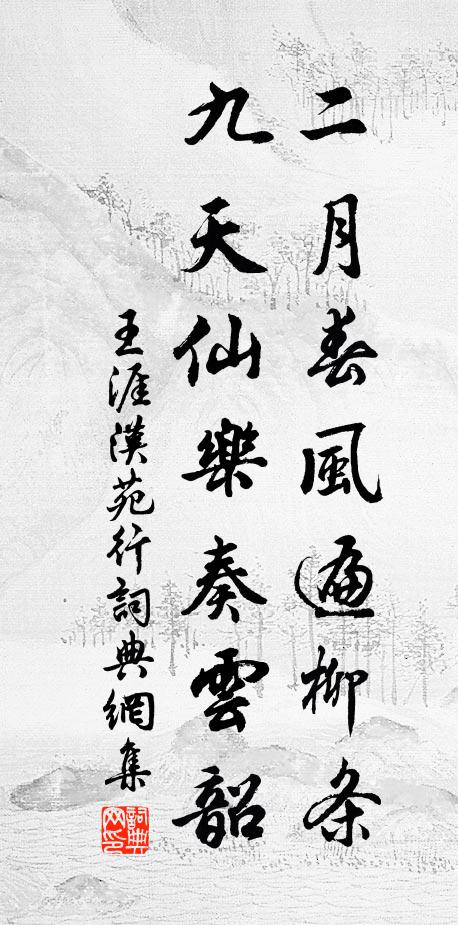 二月春風遍柳条
九天仙樂奏雲韶
王涯漢苑行詞典網集
詞典網印